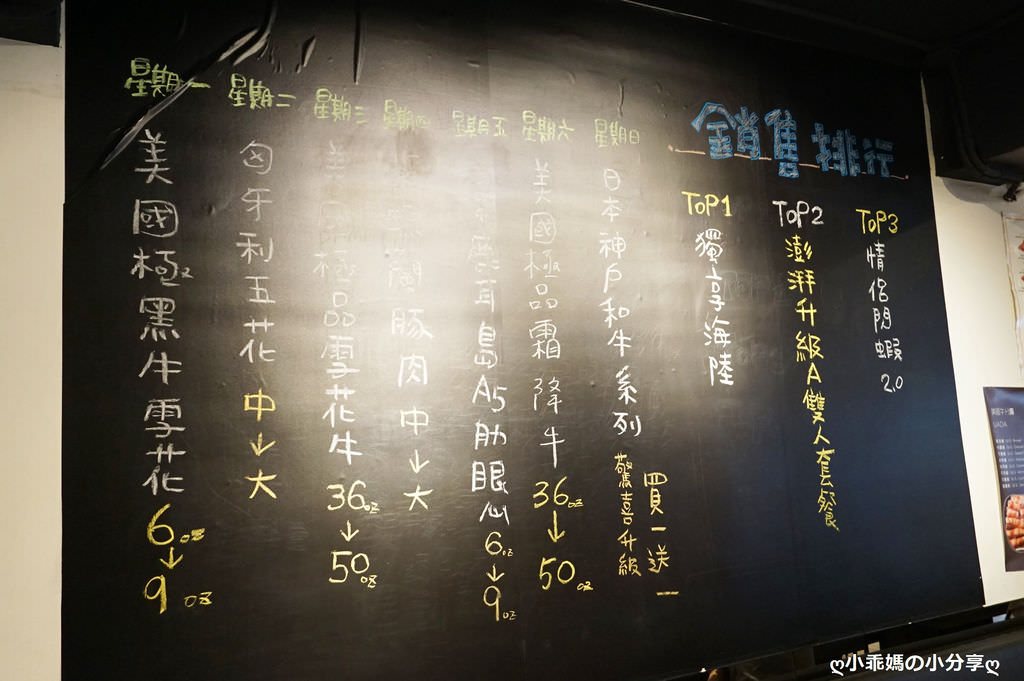 星期一
美國極黑牛雪花
6oz
↓
9oz
星期二
匈牙利五花中↓大
星期三
美國極品雪花牛
36oz
↓
50oz
星期四
豚肉中↓大
星期五
耳島A5肋眼心
6oz
↓
9oz
星期六
美國極品霜降牛
36oz
↓
50oz
星期日
日本神戶和牛系列
驚喜升級
買一送一
銷售排行
TOP1
獨享海陸
TOP2
澎湃升級A雙人套餐
TOP3
情侶閃蝦2.0
ღ小乖媽の小分享ღ